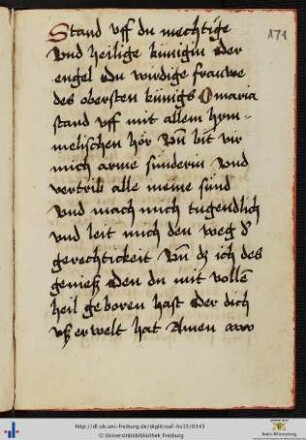 Stand uff du mechtige
vnd heilige künigin der
engel du wirdige frauwe
des obersten künigs O maria
stand uff mit allem hym-
melischen hör vn̄ bit vir
mich arme sünderin vnd
vertrib alle meine sünd
vnd mach mich tugendlich
vnd leit mich den weg d̕
gerechtickeit vn̄ dz ich des
genieß den du mit vollē
heil geboren hast der dich
vßerwelt hat Amen
171
http://dl.ub.uni-freiburg.de/diglit/saf-hs15/0343
© Universitätsbibliothek Freiburg